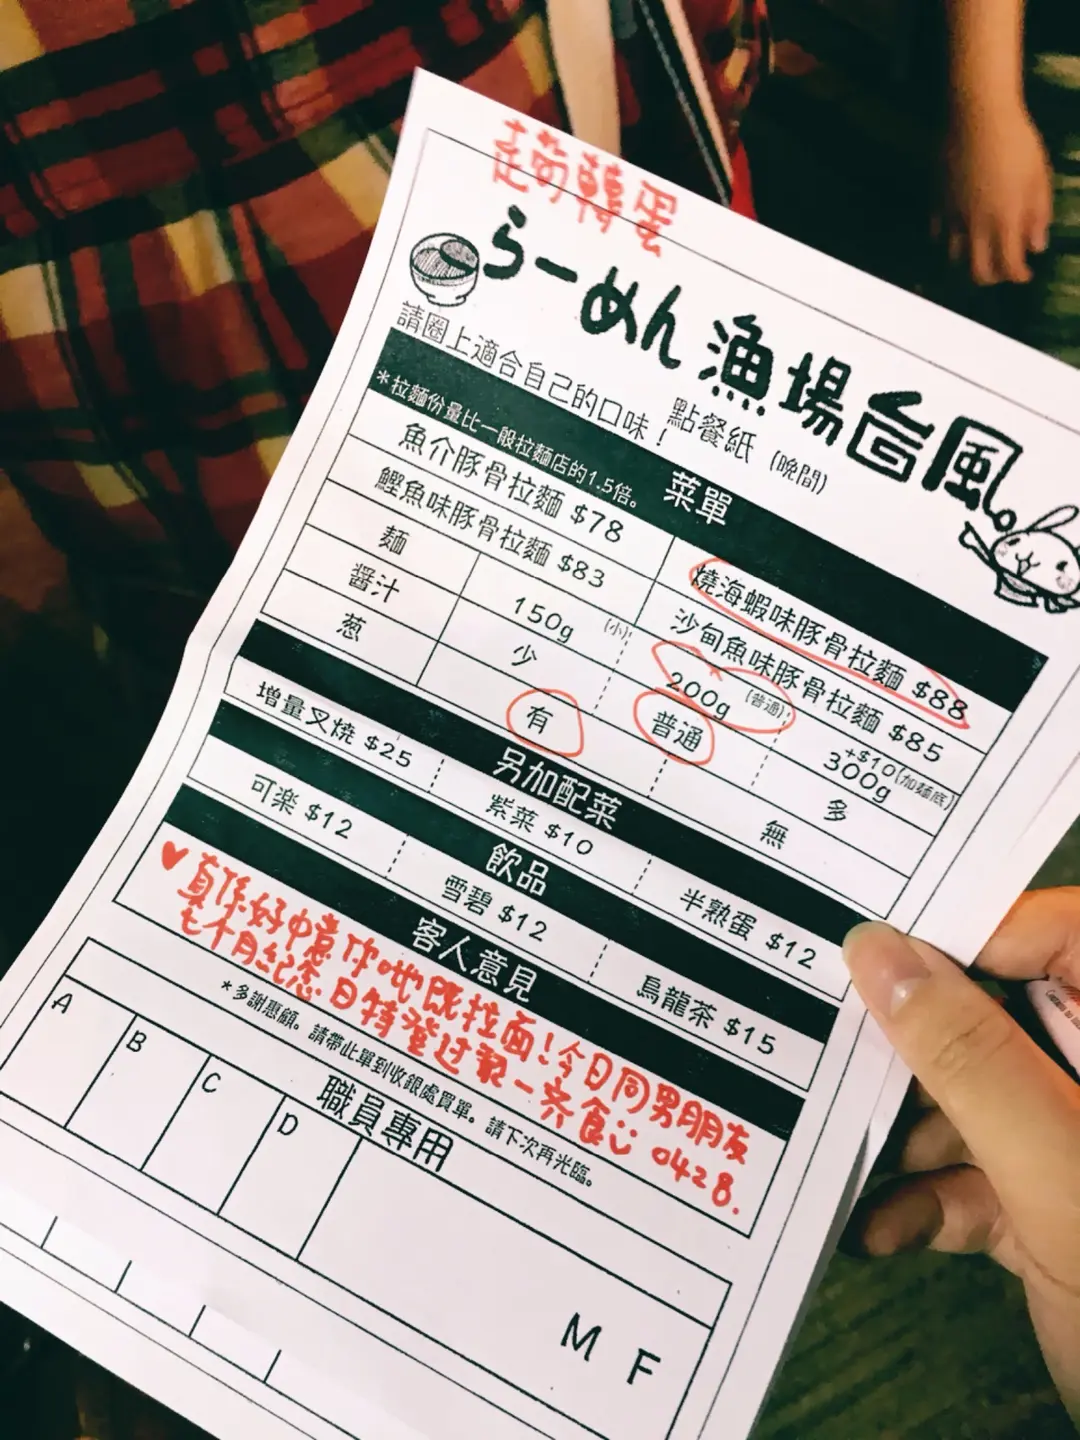 走葱轉蛋
らーめん 漁場台風。
請圈上適合自己的口味！ 點餐紙 (晚間)
*拉麵份量比一般拉麵店的1.5倍。 菜單
魚介豚骨拉麵 $78 燒海蝦味豚骨拉麵 $88
鰹魚味豚骨拉麵 $83 沙甸魚味豚骨拉麵 $85
麵 150g (小) 200g (普通) +$10(加麵底) 300g
醤汁 少 普通 多
葱 有 無
另加配菜
增量叉燒 $25 紫菜 $10 半熟蛋 $12
飲品
可樂 $12 雪碧 $12 烏龍茶 $15
客人意見
♥ 真係好中意你哋既拉面!今日同男朋友
七个月纪念日特登过黎一齐食 0428.
*多謝惠顧。請帶此單到收銀處買單。請下次再光臨。
職員專用
A B C D
M F